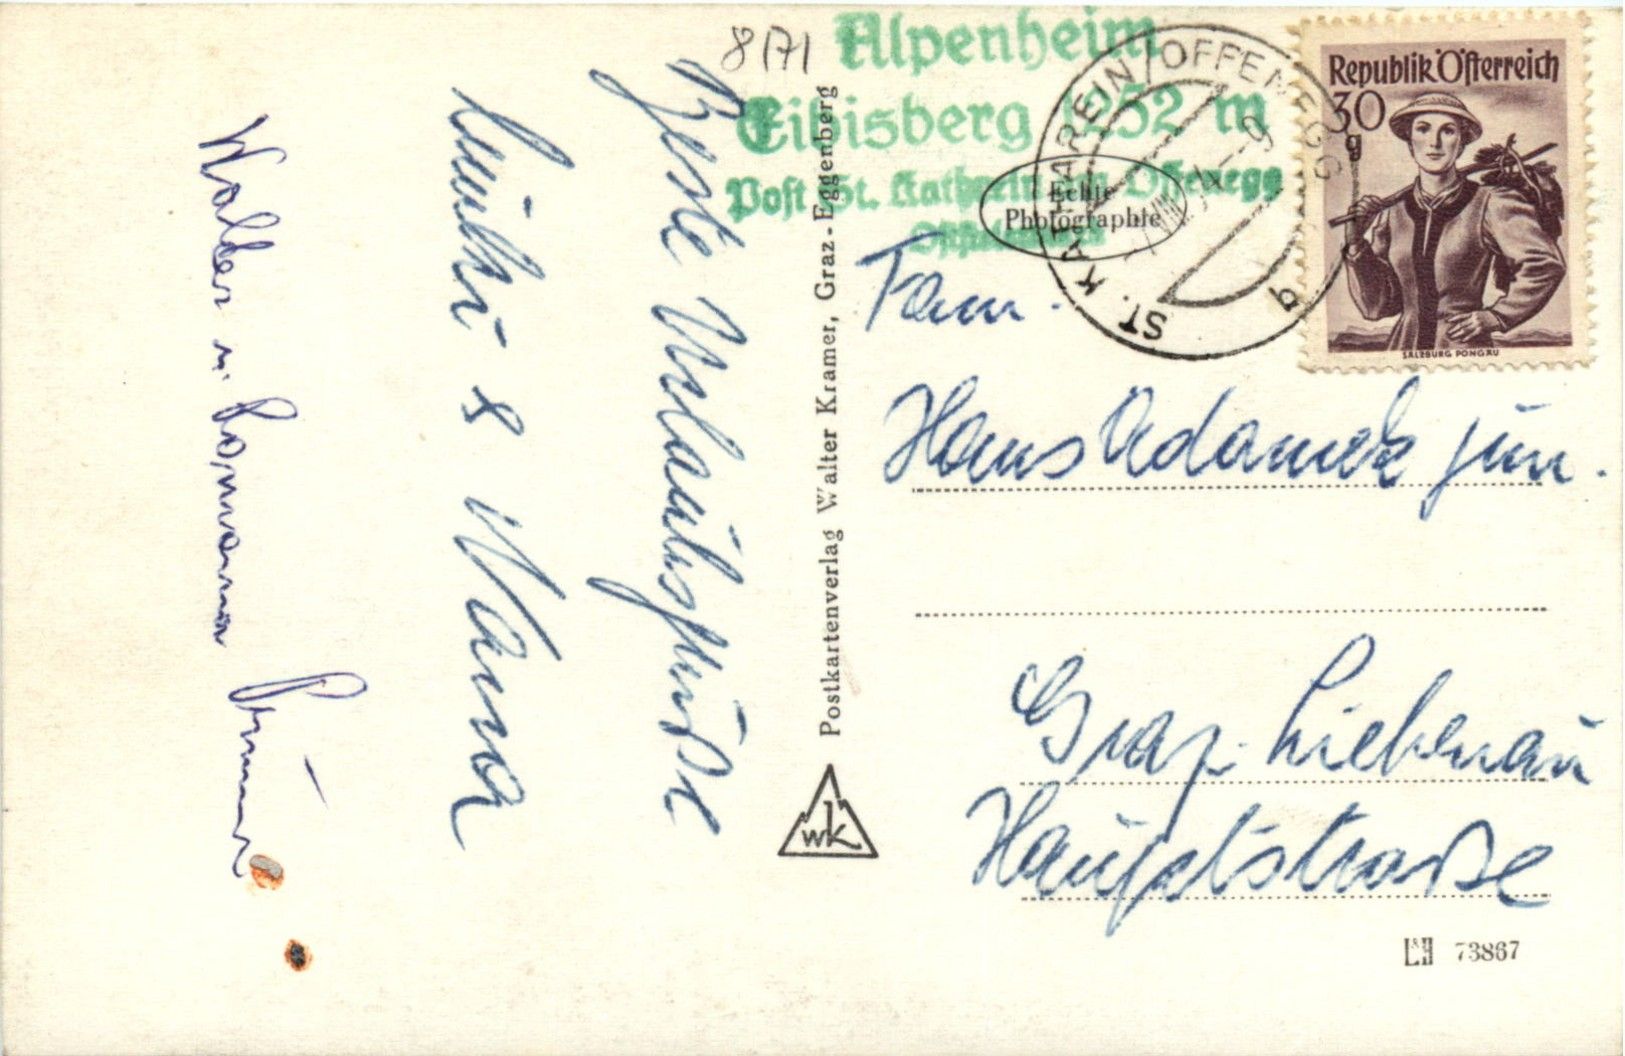 8171
Alpenheim
Eibisberg 1252 m
Post St. Kathrein Offenegg
ST. KATHAREIN OFFENEGG
b
Echte
Photographie
Republik Österreich
30
g
SALZBURG PONGAU
Beste Urlaubsgrüße
&
Walter u.
Postkartenverlag Walter Kramer, Graz-Eggenberg
wk
Fam.
Hans Adamek jun.
Graz-Liebenau
Hauptstraße
L&H 73867